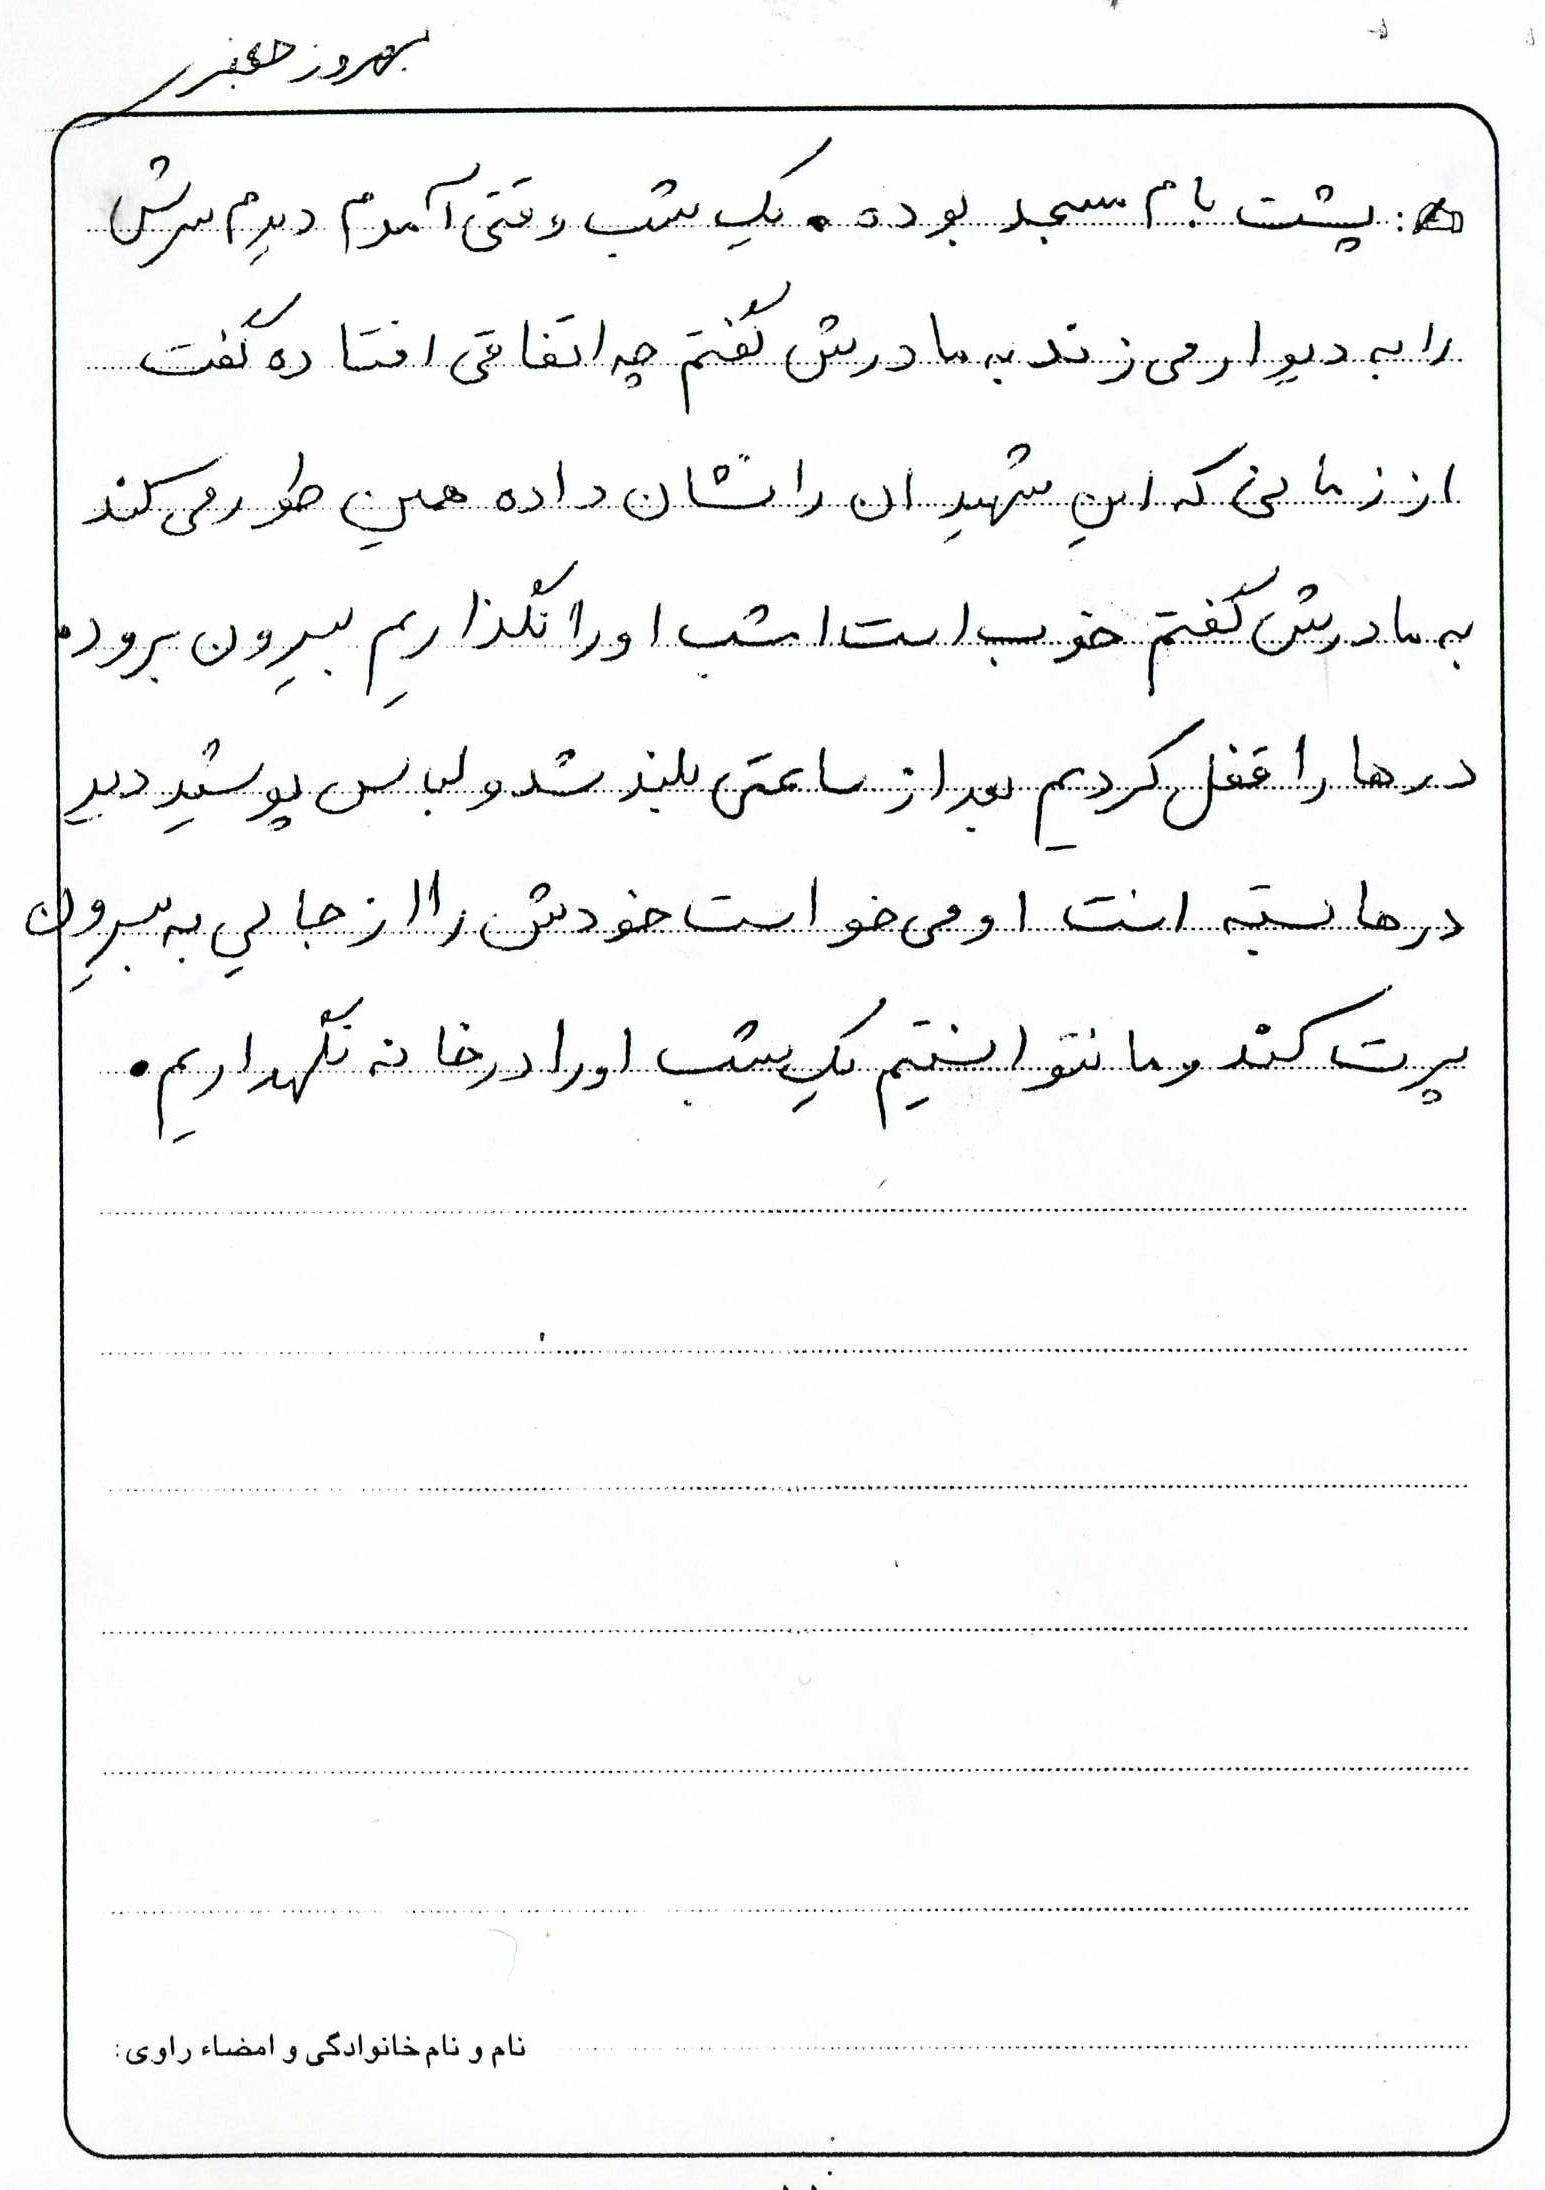 بهروز جعفری
: پشت بام مسجد بوده. یک شب وقتی آمدم دیدم سرش
را به دیوار می زند به مادرش گفتم چه اتفاقی افتاده گفت
از زمانی که این شهیدان را نشان داده همین طور می کند
به مادرش گفتم خوب است امشب او را نگذاریم بیرون برود.
درها را قفل کردیم بعد از ساعتی بلند شد و لباس پوشید دید
درها بسته است او می خواست خودش را از جایی به بیرون
پرت کند و ما نتوانستیم یک شب او را در خانه نگهداریم.
نام و نام خانوادگی و امضاء راوی: